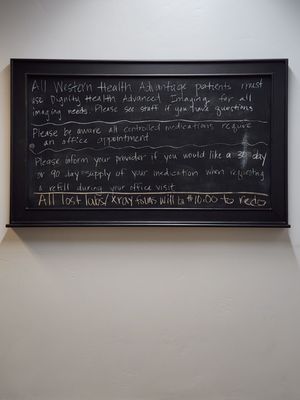 All Western Health Advantage patients must
use Dignity Health Advanced Imaging for all
imaging needs. Please see staff if you have questions
Please be aware all controlled medications require
an office appointment
Please inform your provider if you would like a 30 day
or 90 day supply of your medication when requesting
a refill during your office visit
All lost labs/xray forms will be $10.00 to redo